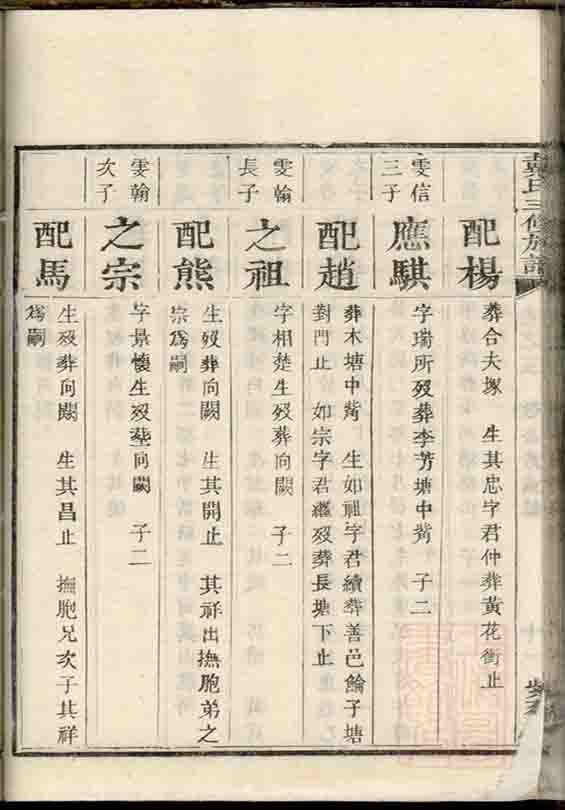 氏三修族譜
配楊
葬合夫塚　生其忠字君仲葬黃花衝止
雯信
三子
應騏
字瑞所歿葬李芳塘中背　子二
配趙
葬木塘中背　生如祖字君續葬善邑鯩子塘
對門止　如宗字君繼歿葬長塘下止
雯翰
長子
之祖
字相楚生歿葬向闕　子二
配熊
生歿葬向闕　生其開止　其祥出撫胞弟之
宗爲嗣
雯翰
次子
之宗
字景懷生歿塟向闕　子二
配馬
生歿葬向闕　生其昌止　撫胞兄次子其祥
爲嗣